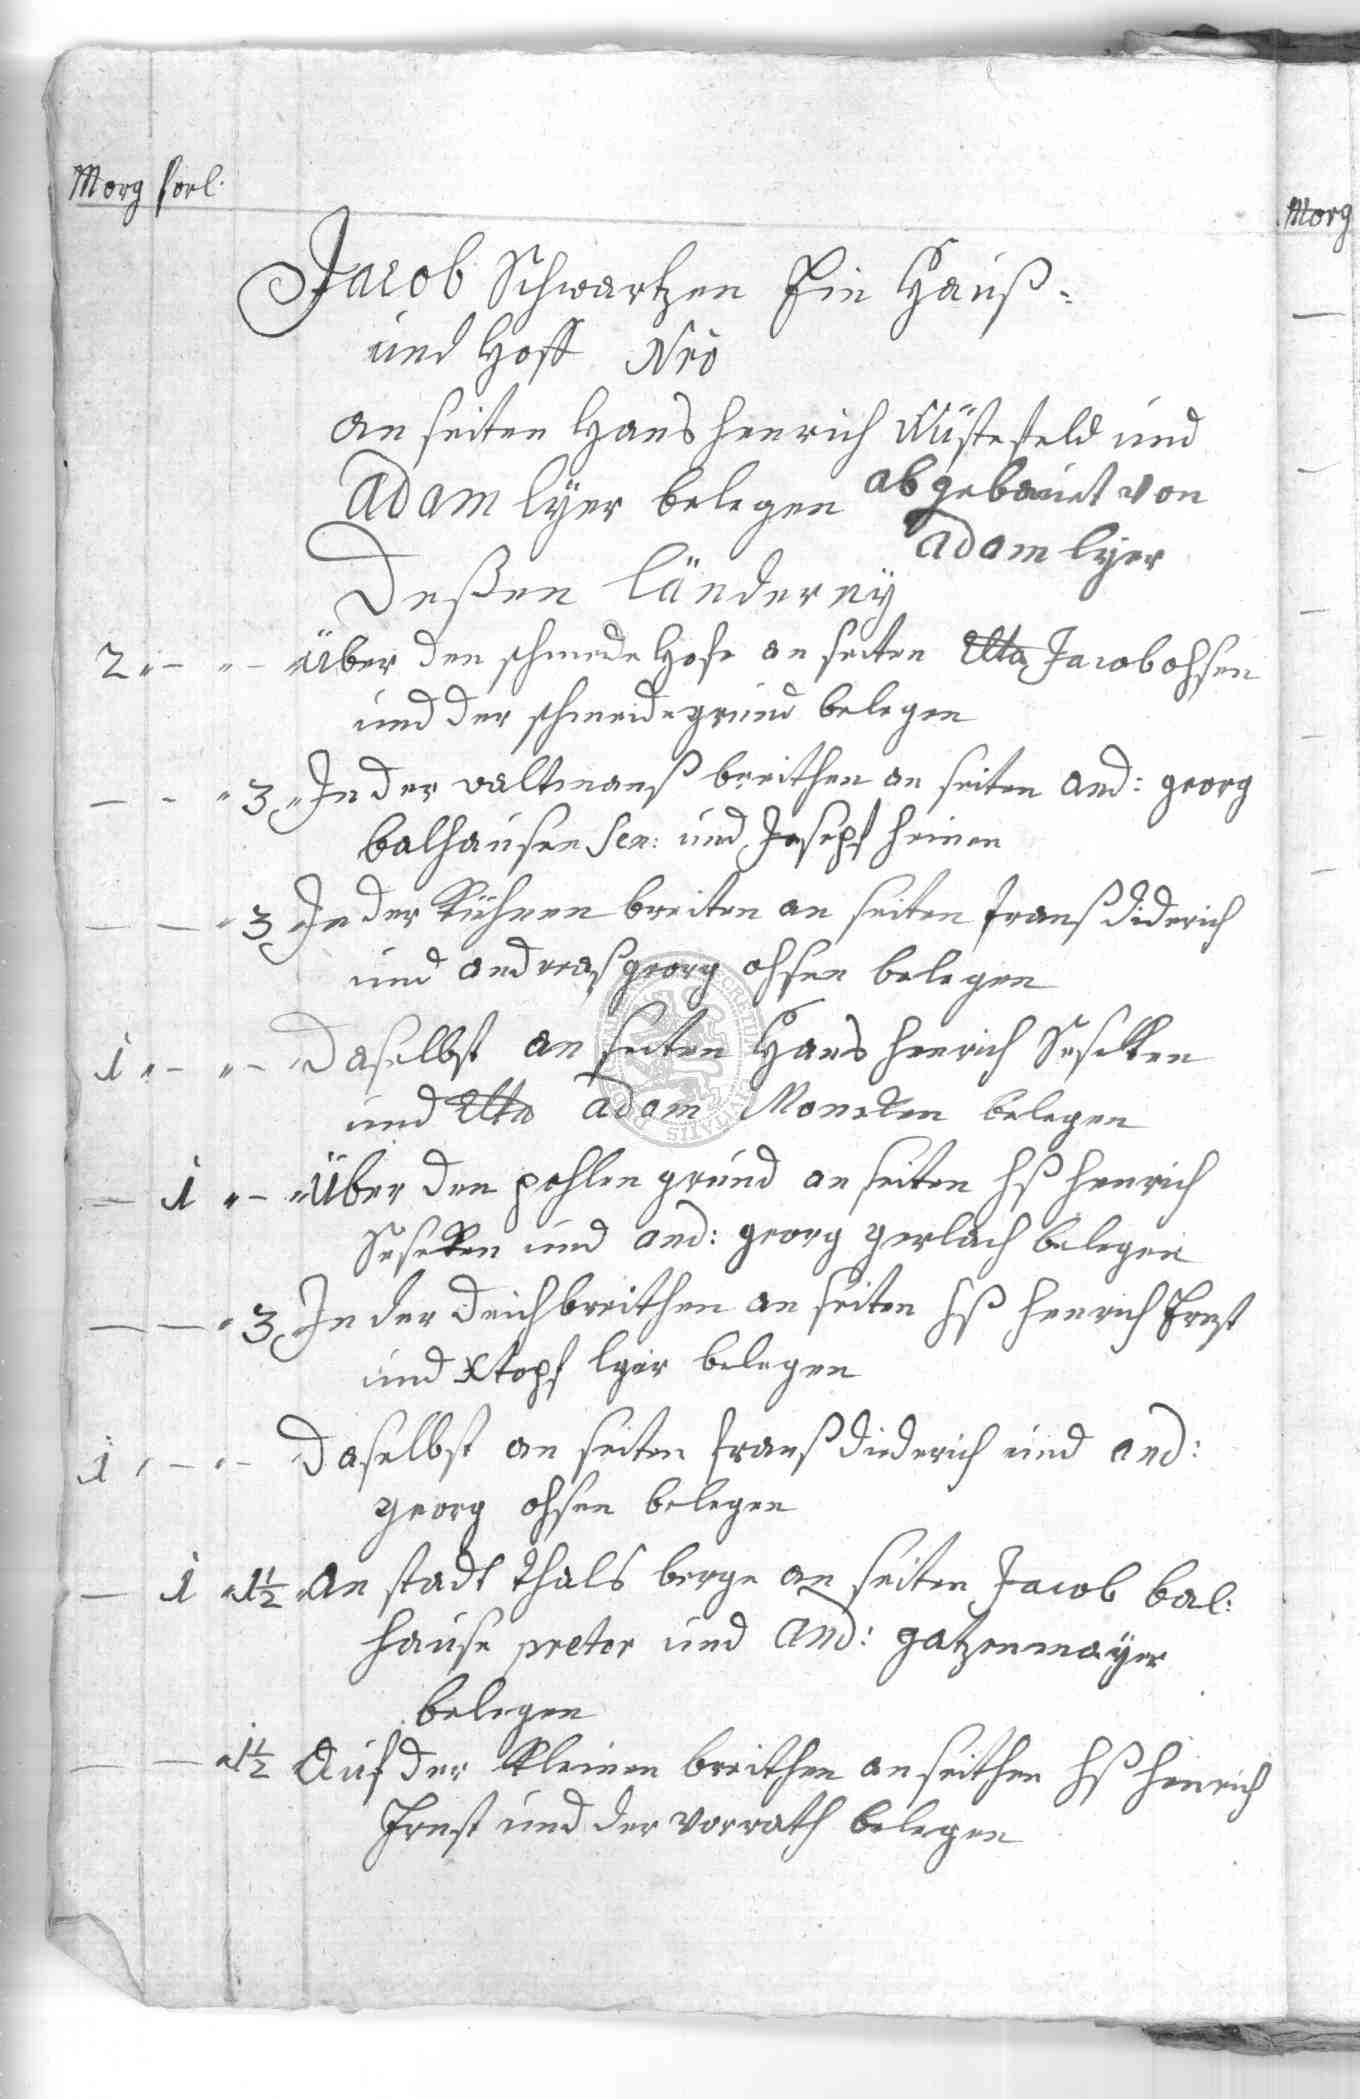 Morg forl.
Morg
Jacob Schwartzen Ein Hauß-
und Hoff Nro
an seiten Hans Henrich Wüstefeld und
Adam lyer belegen abgebauet von
Adam lyer
Deßen länderey
2 „ – „ – Über den schmede Hofe an seiten Jacob ohsen
und der schmeidegrund belegen
– – „ 3 „ In der valtmanß breithen an seiten And: georg
balhausen Sen: und Joseph heinen
– – „ 3 In der Kühnen breiten an seiten franß diderich
und andreaß georg ohsen belegen
1 „ – „ – Daselbst an seiten Hans Henrich Seseken
und adam Monecken belegen
– 1 „ – Über den pohlen grund an seiten Hß Henrich
Seseken und And: georg gerlach belegen
– – „ 3 In der Deichbreithen an seiten Hß Henrich Ernst
und Xtopf lyer belegen
1 „ – „ – Daselbst an seiten franß diederich und And:
georg ohsen belegen
– 1 „ 1½ An stadt thals berge an seiten Jacob bal:
hause pretor und And: gatzenmayer
belegen
– – „ 1½ Auf der kleinen breithen an seithen Hß Henrich
Ernst und der vorrath belegen